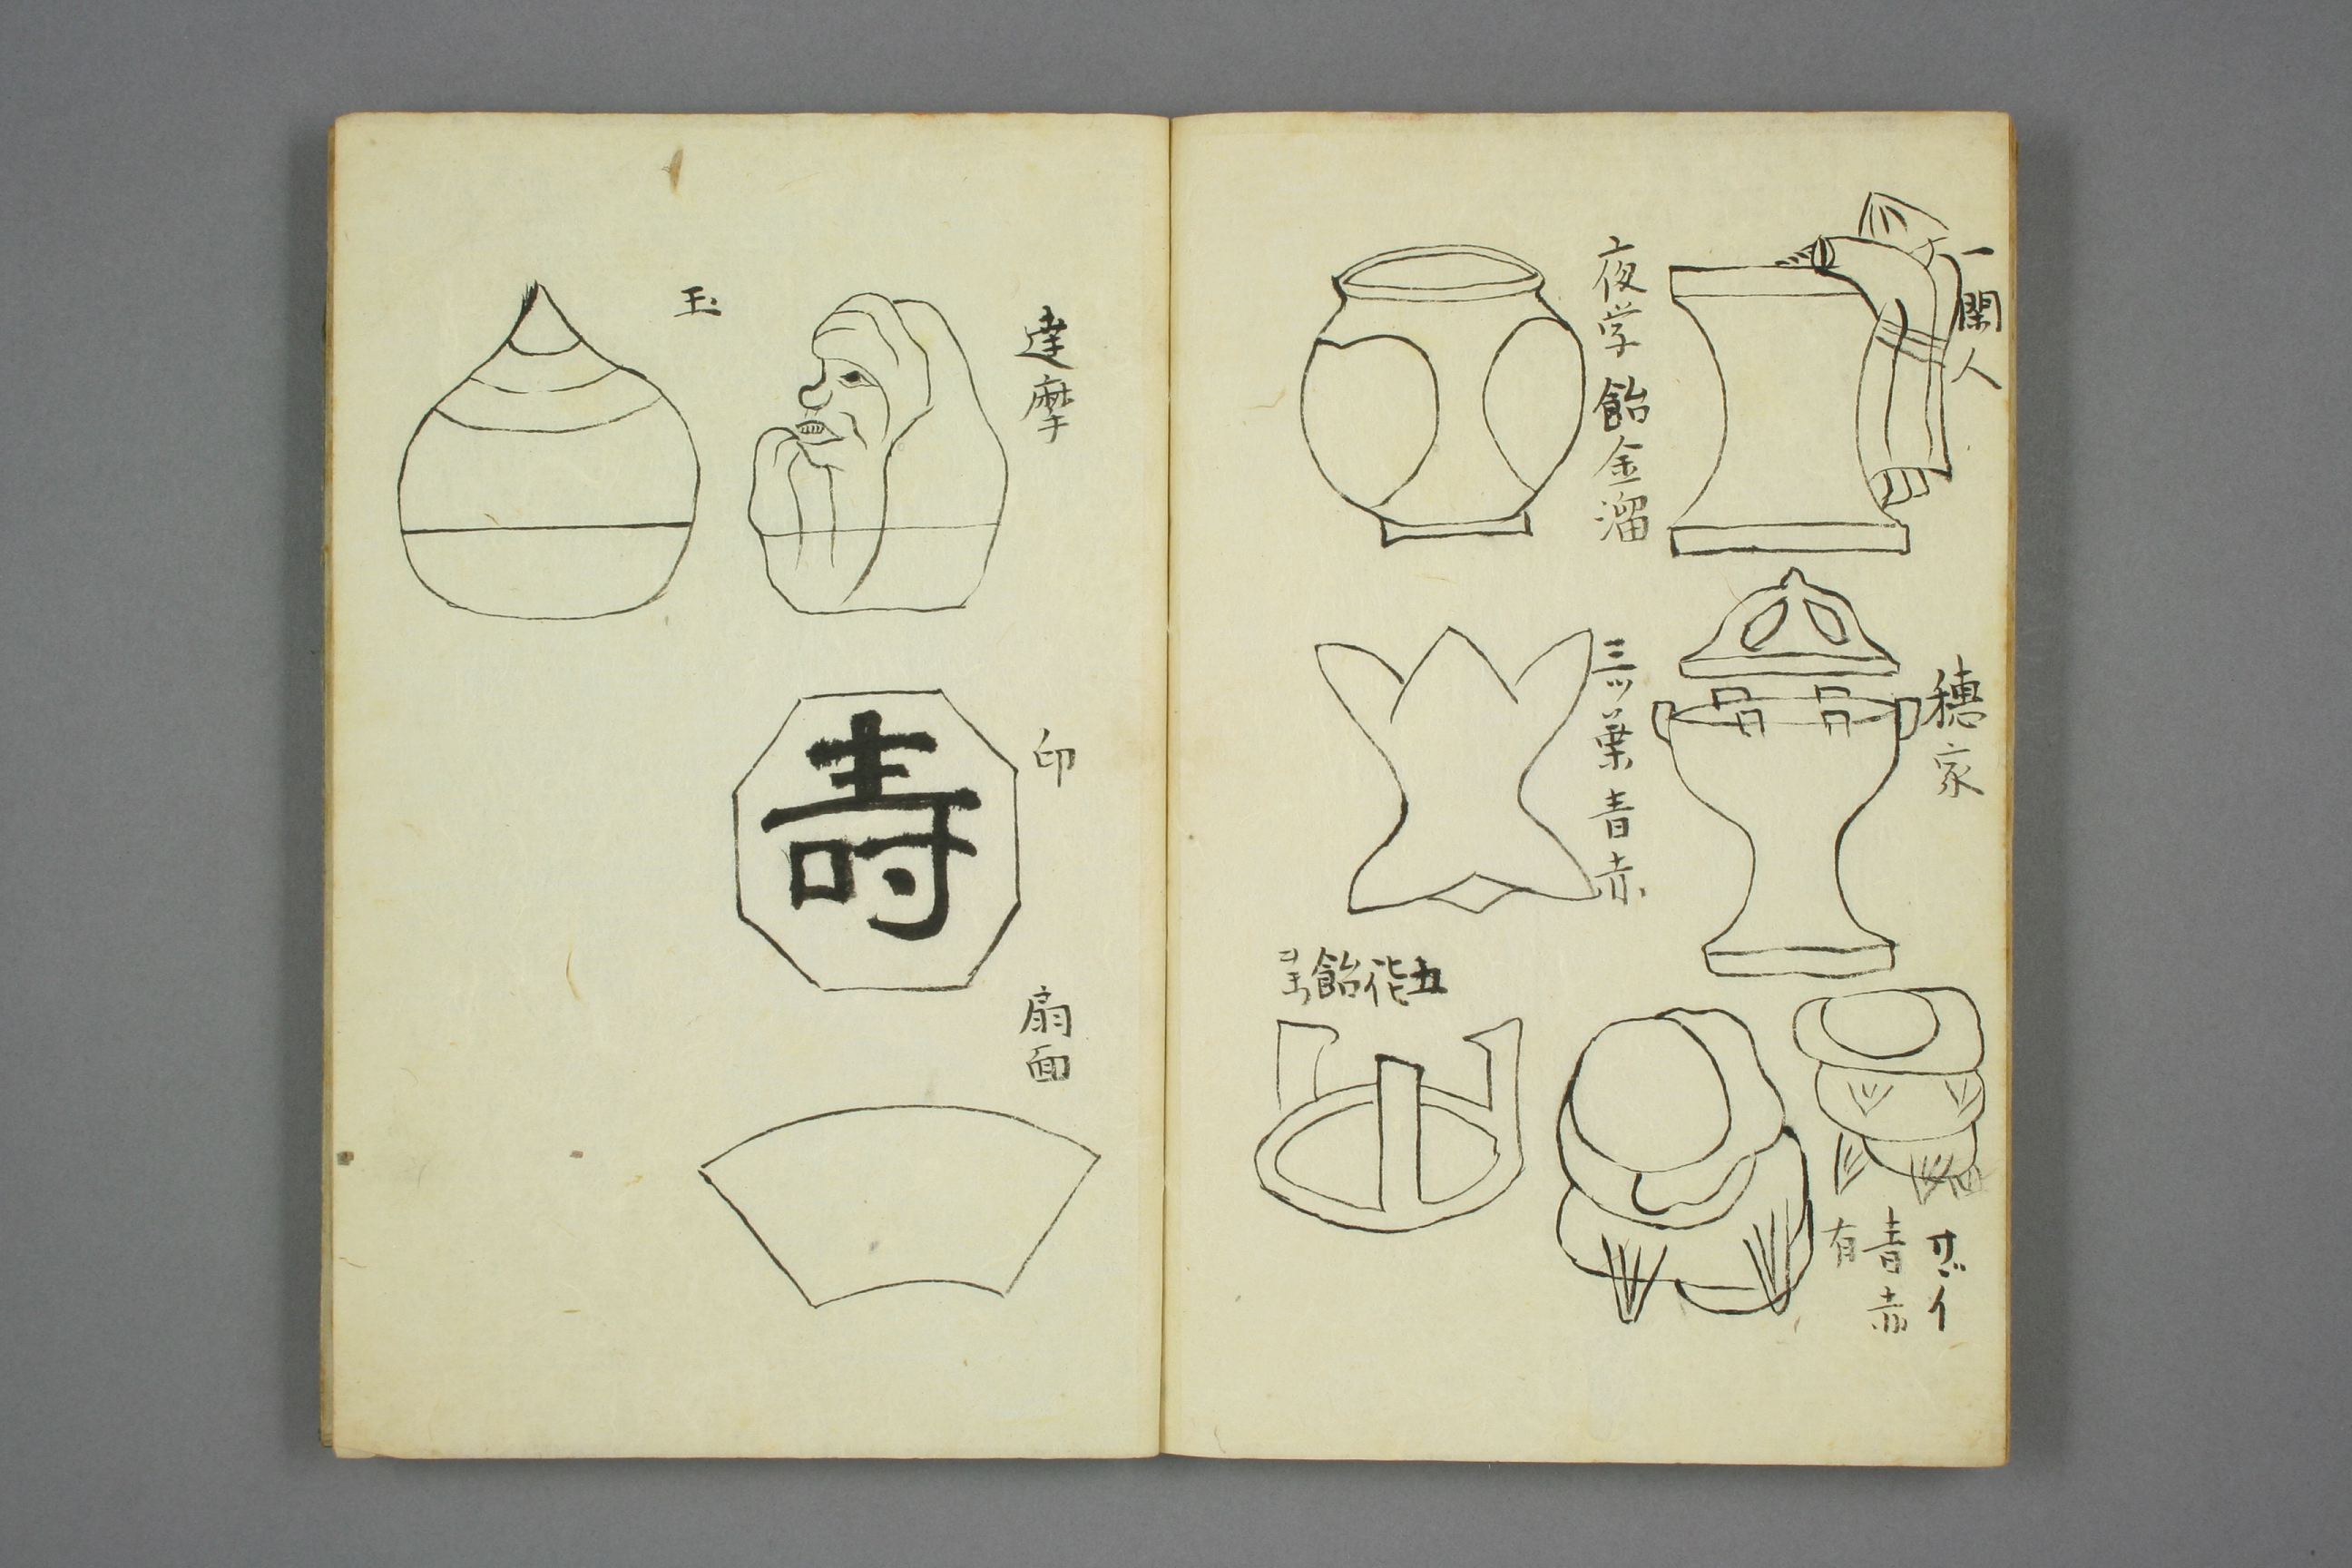 一閑人
夜学 飴金溜
穂家
三ツ葉 青 赤
五徳飴
サ゛イ
青 赤
有
達摩
玉
印
寿
扇面